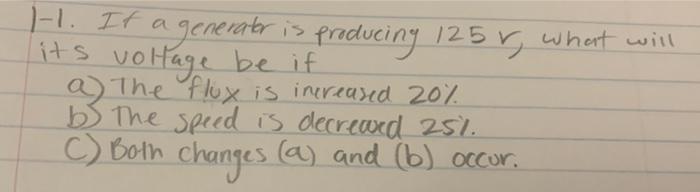 1-1. If a generator is producing 125 V, what will
its voltage be if
a) The flux is increased 20%.
b) The speed is decreased 25%.
C) Both changes (a) and (b) occur.